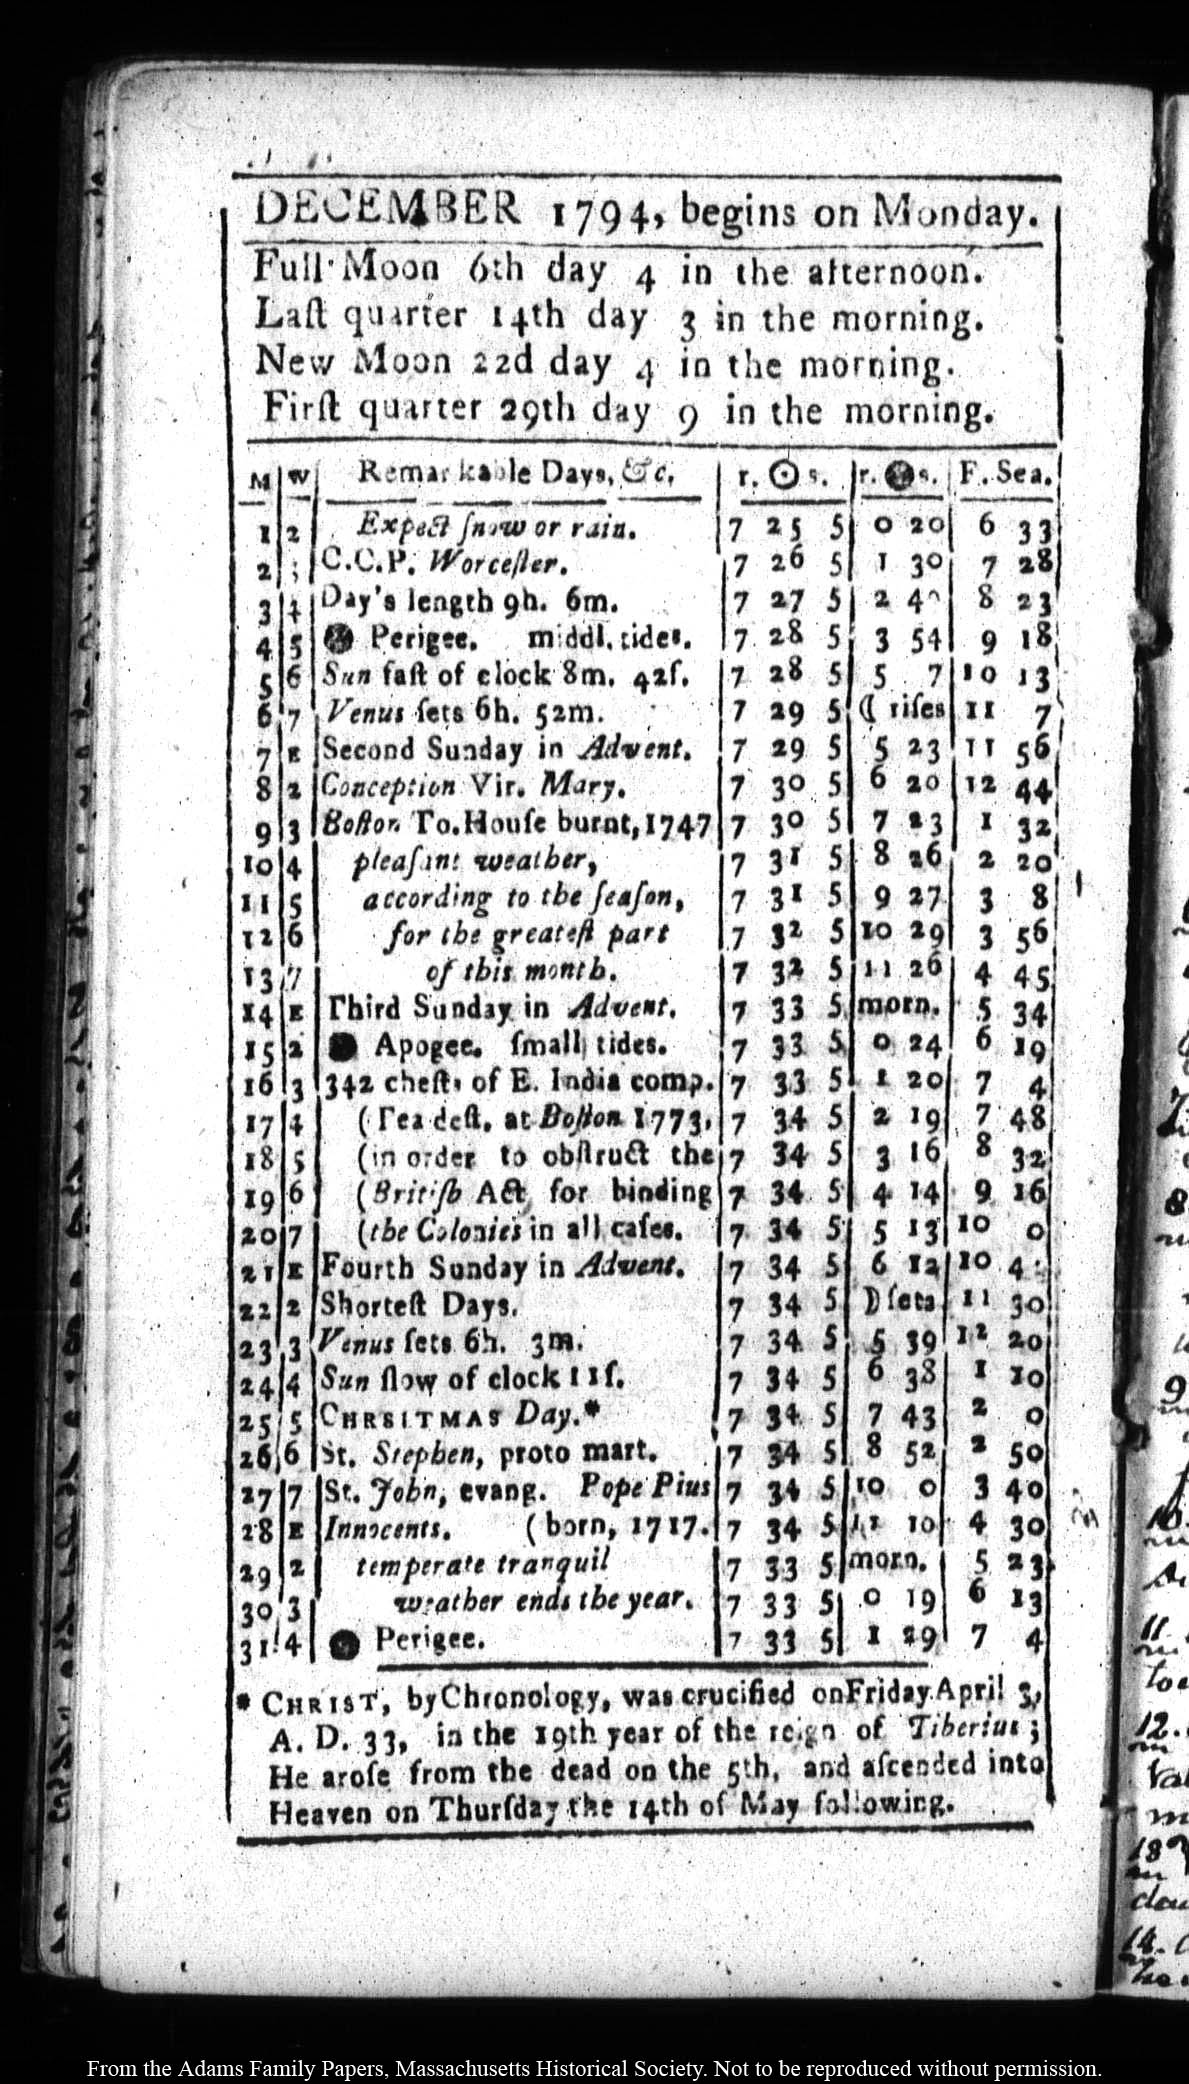 DECEMBER 1794, begins on Monday.
Full Moon 6th day 4 in the afternoon.
Laſt quarter 14th day 3 in the morning.
New Moon 22d day 4 in the morning.
Firſt quarter 29th day 9 in the morning.
M W Remarkable Days, &c. r. ☉ s. r. ● s. F. Sea.
1 2 Expect ſnow or rain. 7 25 5 0 20 6 33
2 3 C.C.P. Worceſter. 7 26 5 1 30 7 28
3 4 Day's length 9h. 6m. 7 27 5 2 8 23
4 5 ● Perigee. middl. tides. 7 28 5 3 54 9 18
5 6 Sun faſt of clock 8m. 42ſ. 7 28 5 5 7 10 13
6 7 Venus ſets 6h. 52m. 7 29 5 ☾ riſes 11 7
7 E Second Sunday in Advent. 7 29 5 5 23 11 56
8 2 Conception Vir. Mary. 7 30 5 6 20 12 44
9 3 Boſton To. Houſe burnt, 1747 7 30 5 7 23 1 32
10 4 pleaſant weather, 7 31 5 8 26 2 20
11 5 according to the ſeaſon, 7 31 5 9 27 3 8
12 6 for the greateſt part 7 32 5 10 29 3 56
13 7 of this month. 7 32 5 11 26 4 45
14 E Third Sunday in Advent. 7 33 5 morn. 5 34
15 2 ● Apogee. ſmall tides. 7 33 5 0 24 6 19
16 3 342 cheſts of E. India comp. 7 33 5 1 20 7 4
17 4 (Tea deſt. at Boſton 1773, 7 34 5 2 19 7 48
18 5 (in order to obſtruct the 7 34 5 3 16 8 32
19 6 (Britiſh Act for binding 7 34 5 4 14 9 16
20 7 (the Colonies in all caſes. 7 34 5 5 13 10 0
21 E Fourth Sunday in Advent. 7 34 5 6 12 10
22 2 Shorteſt Days. 7 34 5 ☽ ſets 11 30
23 3 Venus ſets 6h. 3m. 7 34 5 5 39 12 20
24 4 Sun ſlow of clock 11ſ. 7 34 5 6 38 1 10
25 5 CHRSITMAS Day.* 7 34 5 7 43 2 0
26 6 St. Stephen, proto mart. 7 34 5 8 52 2 50
27 7 St. John, evang. Pope Pius 7 34 5 10 0 3 40
28 E Innocents. (born, 1717. 7 34 5 11 10 4 30
29 2 temperate tranquil 7 33 5 morn. 5 23
30 3 weather ends the year. 7 33 5 0 19 6 13
31 4 ● Perigee. 7 33 5 1 29 7 4
* CHRIST, by Chronology, was crucified on Friday April 3,
A. D. 33, in the 19th year of the reign of Tiberius;
He aroſe from the dead on the 5th, and aſcended into
Heaven on Thurſday the 14th of May following.
From the Adams Family Papers, Massachusetts Historical Society. Not to be reproduced without permission.